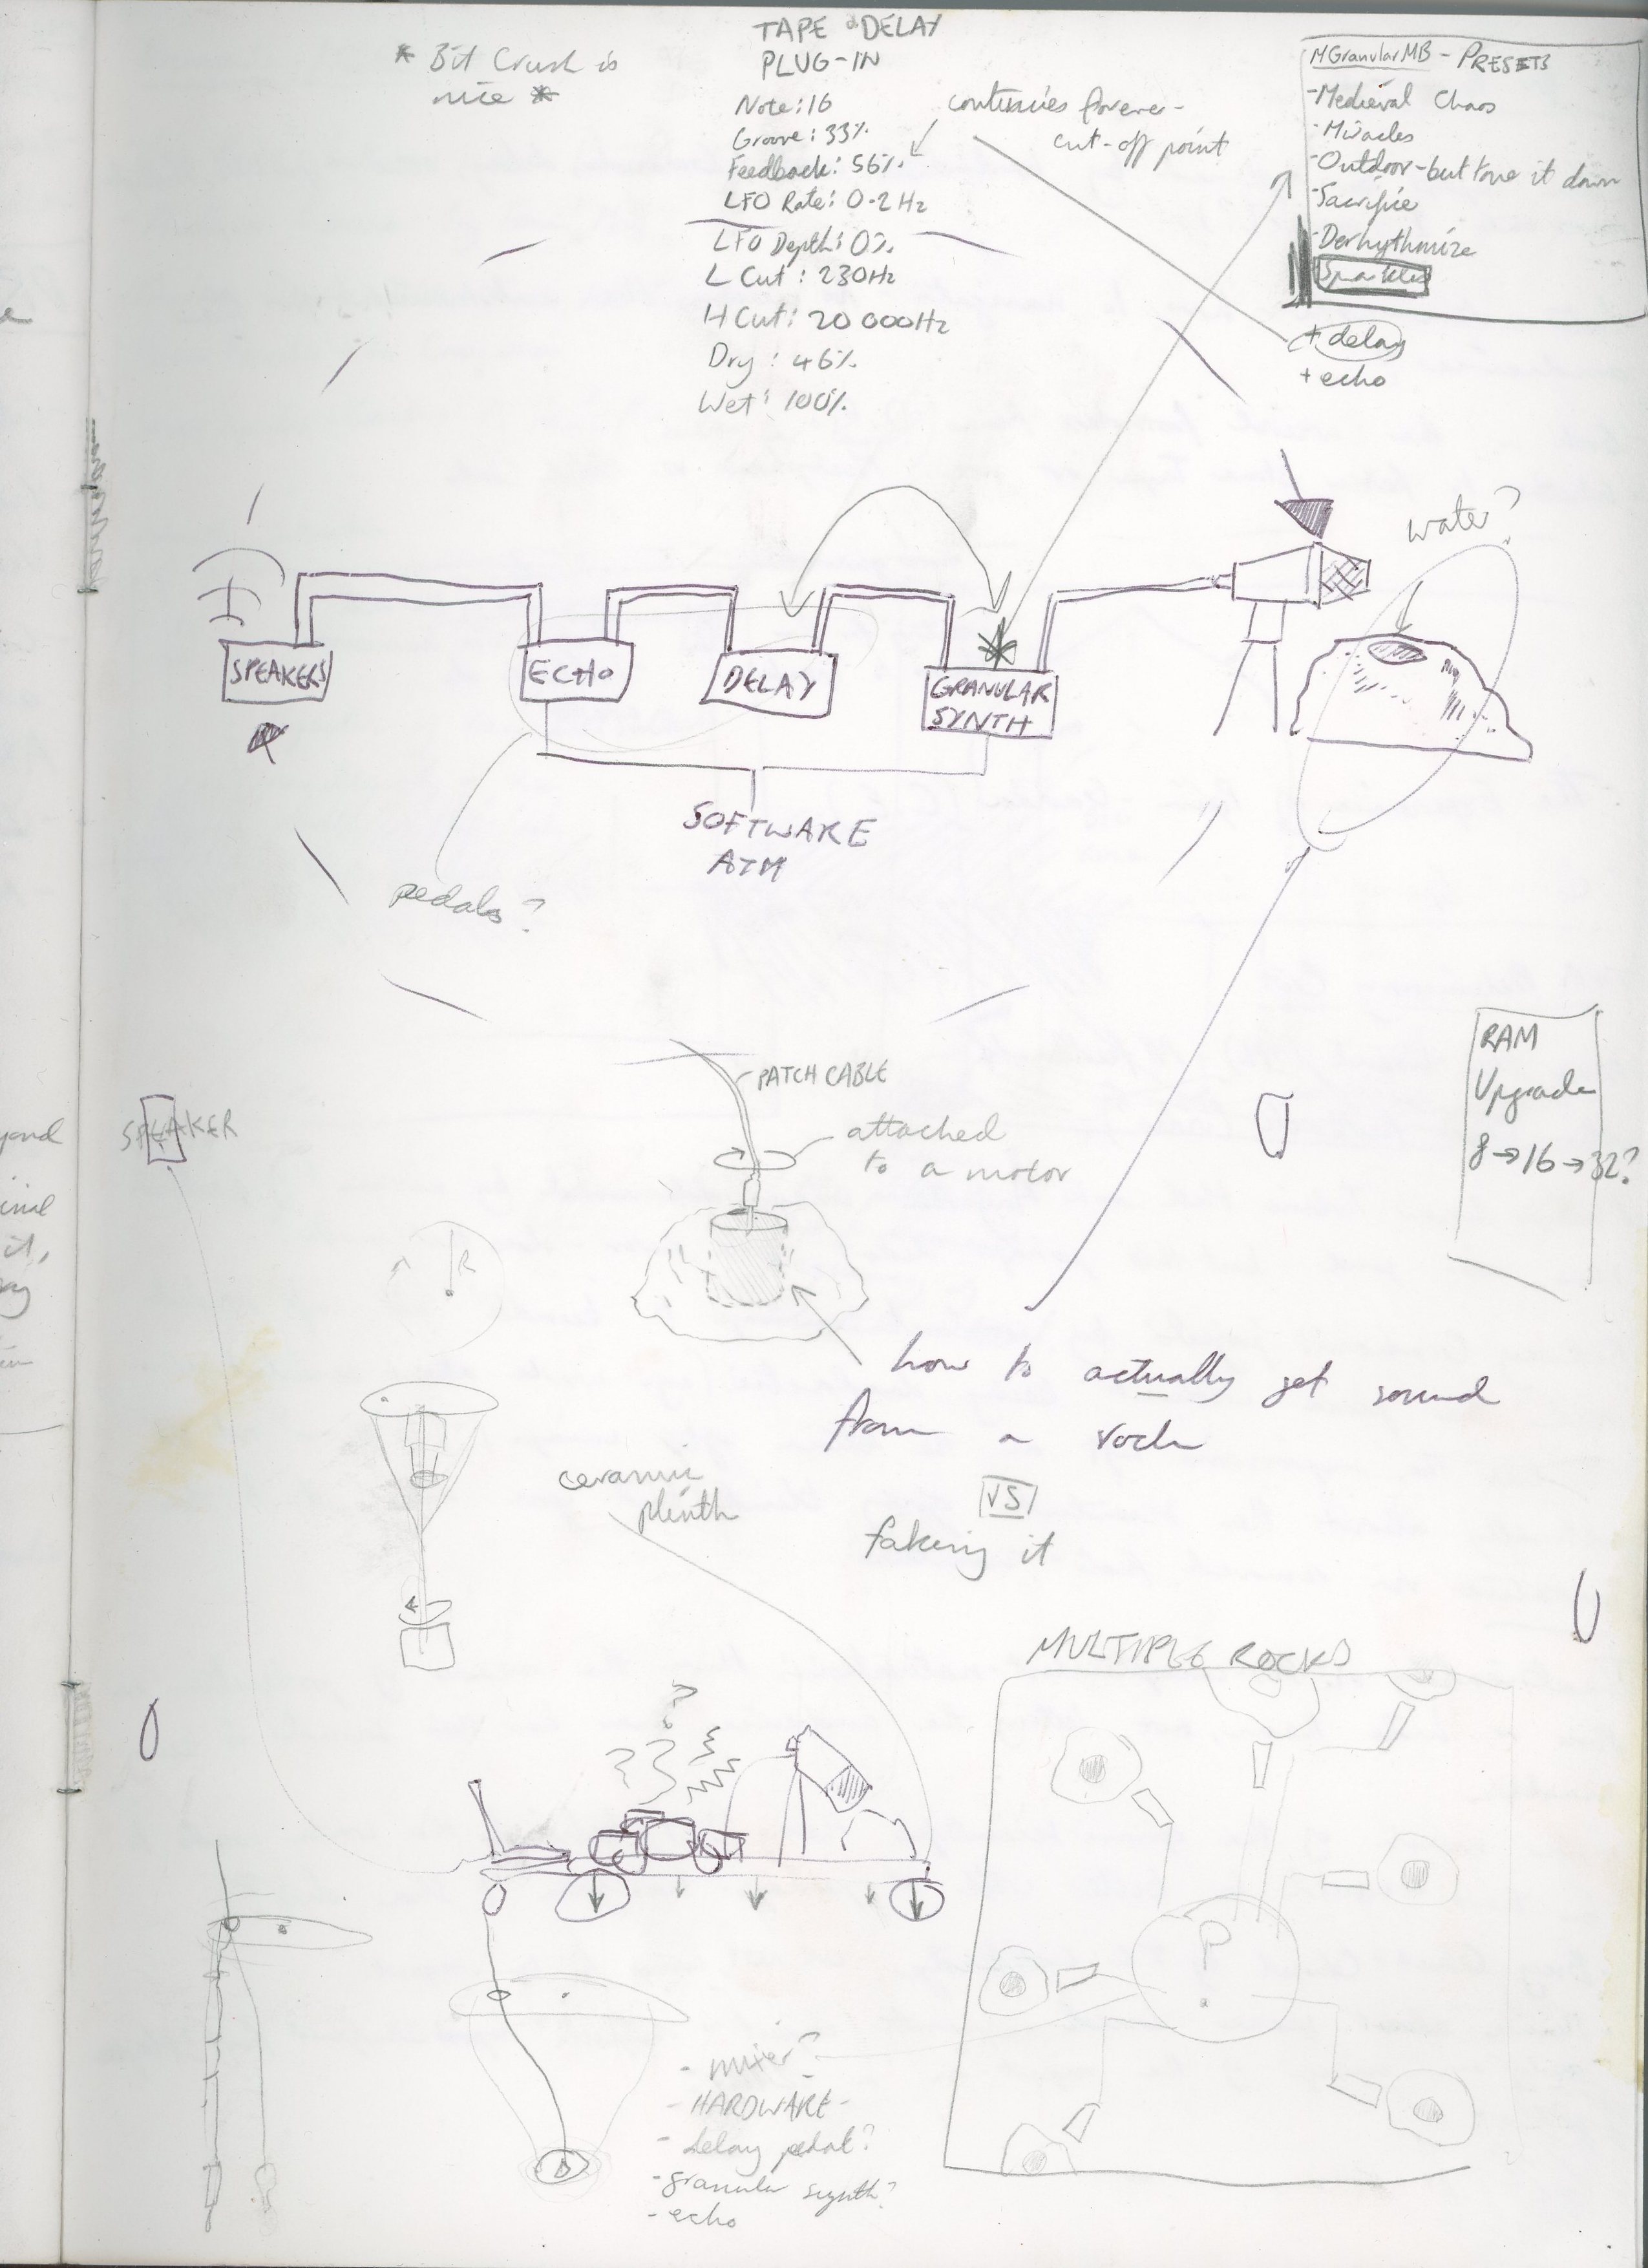 * Bit Crush is
nice *
TAPE DELAY
PLUG-IN
Note: 16
Groove: 33%
Feedback: 56%
LFO Rate: 0.2Hz
LFO Depth: 0%
L Cut: 230Hz
H Cut: 20 000Hz
Dry: 46%
Wet: 100%
continues forever -
cut-off point
MGranularMB - PRESETS
- Medieval Chaos
- Miracles
- Outdoor - but tone it down
- Sacrifice
- Derhythmize
- Sparkles
+ delay
+ echo
water?
SPEAKERS
ECHO
DELAY
GRANULAR
SYNTH
SOFTWARE
ATM
pedals?
RAM
Upgrade
8→16→32?
PATCH CABLE
attached
to a motor
SPEAKER
R
how to actually get sound
from a rock
VS
faking it
ceramic
plinth
MULTIPLE ROCKS
?
?
- mixer?
- HARDWARE -
- delay pedal?
- granular synth?
- echo